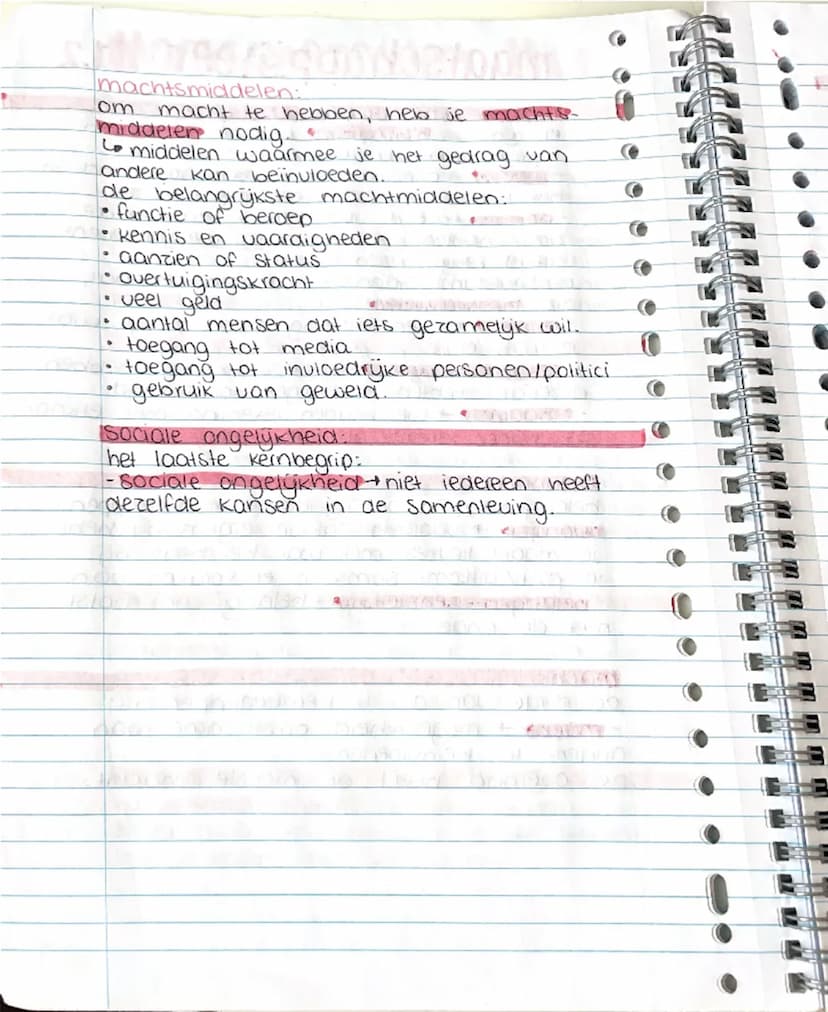 machtsmiddelen:
om macht te hebben, heb je machts-
middelen nodig.
↳ middelen waarmee je het gedrag van
andere kan beïnvloeden.
de belangrijkste machtmiddelen:
• functie of beroep
• kennis en vaardigheden
• aanzien of status
• overtuigingskracht
• veel geld
• aantal mensen dat iets gezamelijk wil.
• toegang tot media
• toegang tot invloedrijke personen/politici
• gebruik van geweld.
sociale ongelijkheid:
het laatste kernbegrip:
- sociale ongelijkheid → niet iedereen heeft
dezelfde kansen in de samenleving.